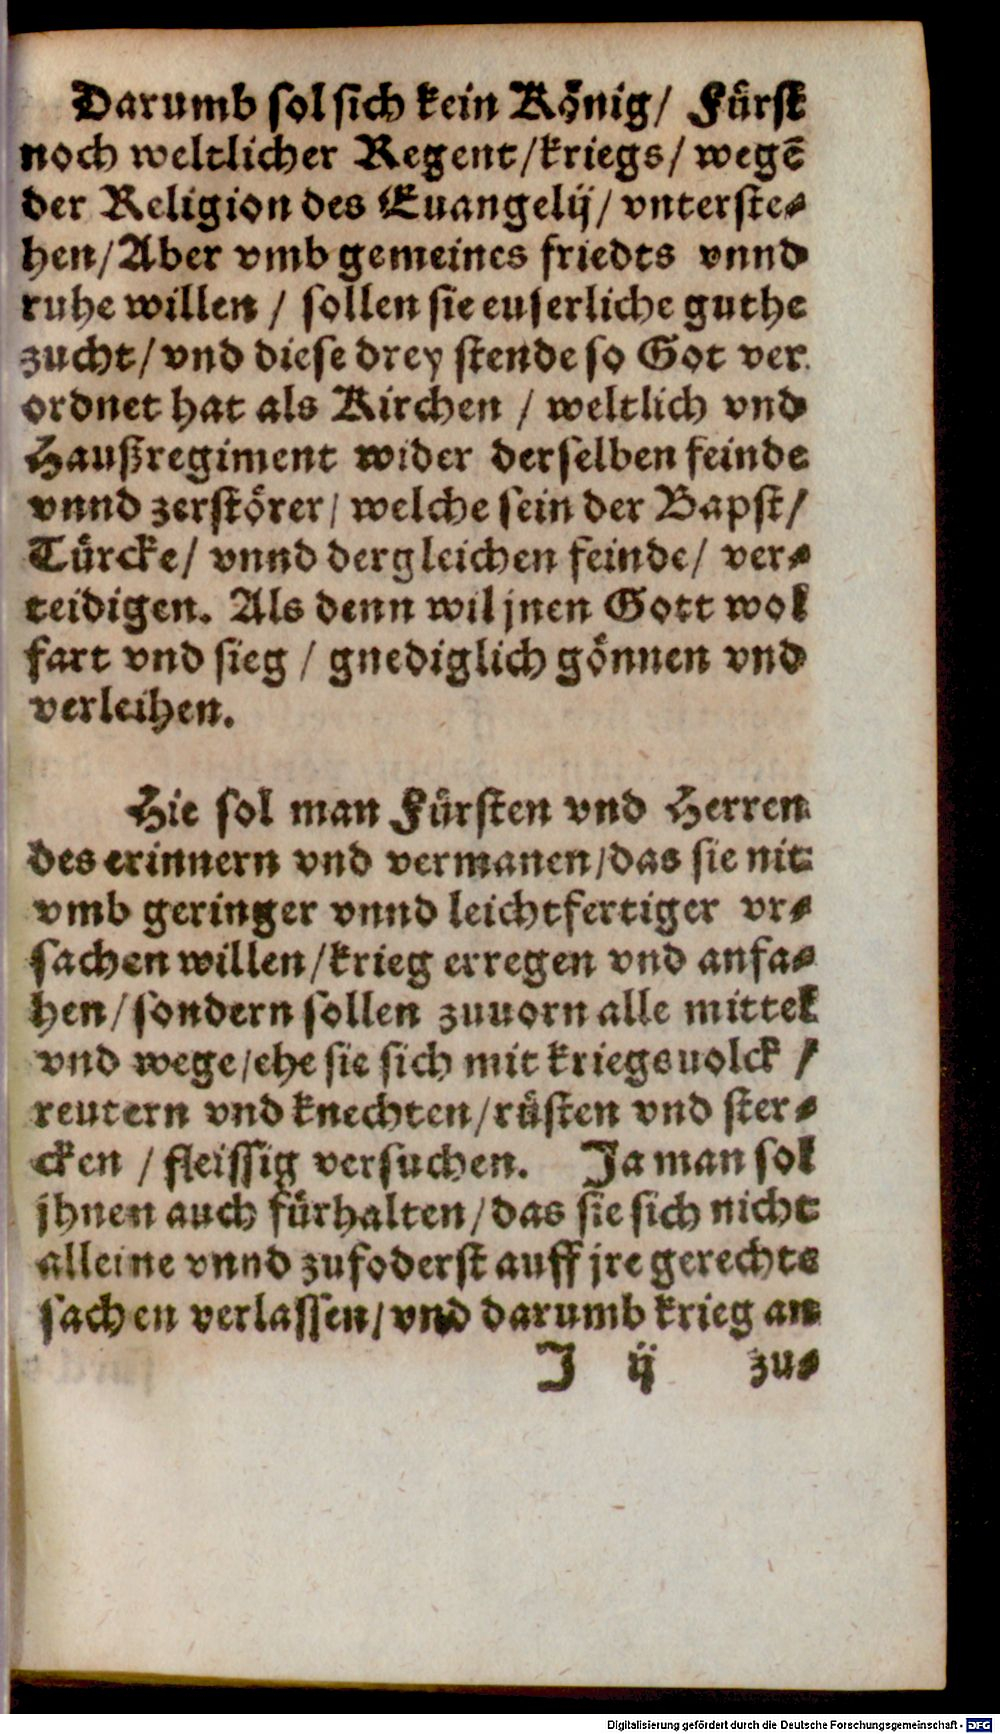 Darumb sol sich kein König/ Fürst
noch weltlicher Regent/kriegs/ wegē
der Religion des Euangelij/ vnterste-
hen/Aber vmb gemeines friedts vnnd
ruhe willen / sollen sie euserliche guthe
zucht/ vnd diese drey stende so Got ver
ordnet hat als Kirchen / weltlich vnd
Haußregiment wider derselben feinde
vnnd zerstörer/ welche sein der Bapst/
Türcke/ vnnd dergleichen feinde/ ver-
teidigen. Als denn wil jnen Gott wol
fart vnd sieg / gnediglich gönnen vnd
verleihen.
Hie sol man Fürsten vnd Herren
des erinnern vnd vermanen/das sie nit
vmb geringer vnnd leichtfertiger vr-
sachen willen/krieg erregen vnd anfa-
hen/sondern sollen zuuorn alle mittel
vnd wege/ehe sie sich mit kriegsuolck /
reutern vnd knechten/rüsten vnd ster-
cken / fleissig versuchen. Ja man sol
jhnen auch fürhalten/das sie sich nicht
alleine vnnd zufoderst auff jre gerechte
sachen verlassen/vnd darumb krieg an
J ij zu-
Digitalisierung gefördert durch die Deutsche Forschungsgemeinschaft - DFG